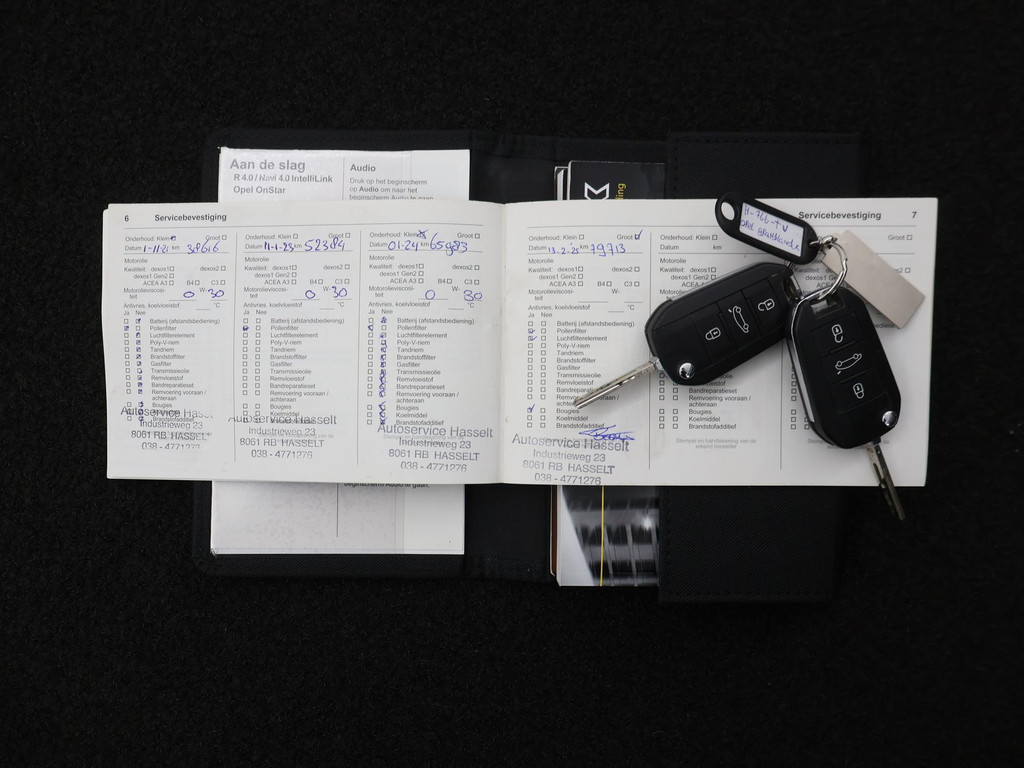 Aan de slag
R 4.0 / Navi 4.0 IntelliLink
Opel OnStar
Audio
Druk op het beginscherm
op Audio om naar het
6 Servicebevestiging
Onderhoud: Klein Groot
Datum 1-11-21 km 38616
Motorolie
Kwaliteit: dexos1 dexos2
dexos1 Gen2
ACEA A3 B4 C3
Motorolieviscosi-
teit 0 W- 30
Antivries, koelvloeistof °C
Ja Nee
Batterij (afstandsbediening)
Pollenfilter
Luchtfilterelement
Poly-V-riem
Tandriem
Brandstoffilter
Gasfilter
Transmissieolie
Remvloeistof
Bandreparatieset
Remvoering vooraan /
achteraan
Bougies
Autoservice Hasselt
Industrieweg 23
8061 RB HASSELT
038 - 4771276
Onderhoud: Klein Groot
Datum 11-1-23 km 52384
Motorolie
Kwaliteit: dexos1 dexos2
dexos1 Gen2
ACEA A3 B4 C3
Motorolieviscosi-
teit 0 W- 30
Antivries, koelvloeistof °C
Ja Nee
Batterij (afstandsbediening)
Pollenfilter
Luchtfilterelement
Poly-V-riem
Tandriem
Brandstoffilter
Gasfilter
Transmissieolie
Remvloeistof
Bandreparatieset
Remvoering vooraan /
achteraan
Bougies
Koelmiddel
Autoservice Hasselt
Industrieweg 23
8061 RB HASSELT
038 - 4771276
Onderhoud: Klein Groot
Datum 01-24 km 65983
Motorolie
Kwaliteit: dexos1 dexos2
dexos1 Gen2
ACEA A3 B4 C3
Motorolieviscosi-
teit 0 W- 30
Antivries, koelvloeistof °C
Ja Nee
Batterij (afstandsbediening)
Pollenfilter
Luchtfilterelement
Poly-V-riem
Tandriem
Brandstoffilter
Gasfilter
Transmissieolie
Remvloeistof
Bandreparatieset
Remvoering vooraan /
achteraan
Bougies
Koelmiddel
Brandstofadditief
Autoservice Hasselt
Industrieweg 23
8061 RB HASSELT
038 - 4771276
Servicebevestiging 7
Onderhoud: Klein Groot
Datum 13-2-25 km 79713
Motorolie
Kwaliteit: dexos1 dexos2
dexos1 Gen2
ACEA A3 B4 C3
Motorolieviscosi- W-
teit
Antivries, koelvloeistof °C
Ja Nee
Batterij (afstandsbediening)
Pollenfilter
Luchtfilterelement
Poly-V-riem
Tandriem
Brandstoffilter
Gasfilter
Transmissieolie
Remvloeistof
Bandreparatieset
Remvoering vooraan /
Bougies
Koelmiddel
Brandstofadditief
Autoservice Hasselt
Industrieweg 23
8061 RB HASSELT
038 - 4771276
Onderhoud: Klein
Datum km
Motorolie
Kwaliteit: dexos1
dexos1 Gen2
Groot
H-766-TV
Opel Grandland x